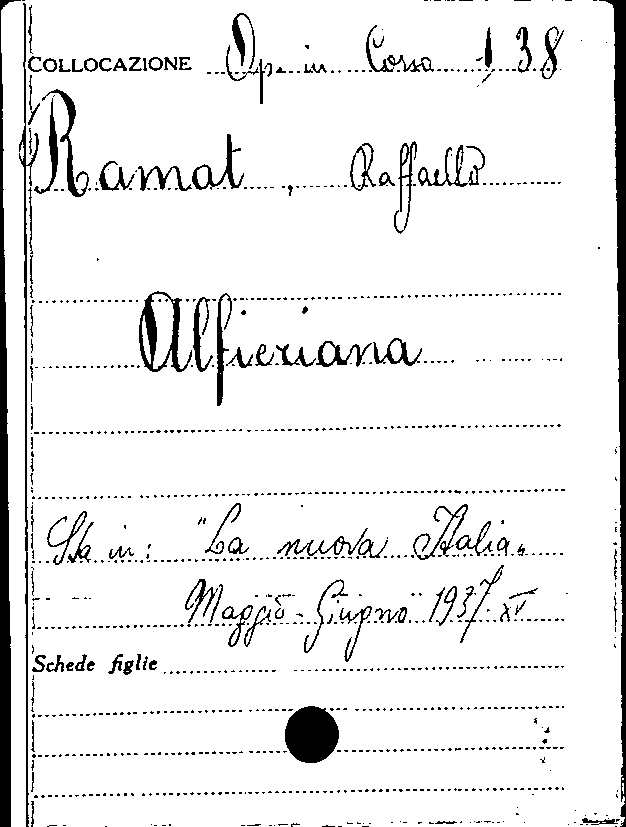 COLLOCAZIONE Op. in Corso 1, 38
Ramat, Raffaello
Alfieriana
Sta in: "La nuova Italia„
Maggio-Giugno 1937. XV
Schede figlie